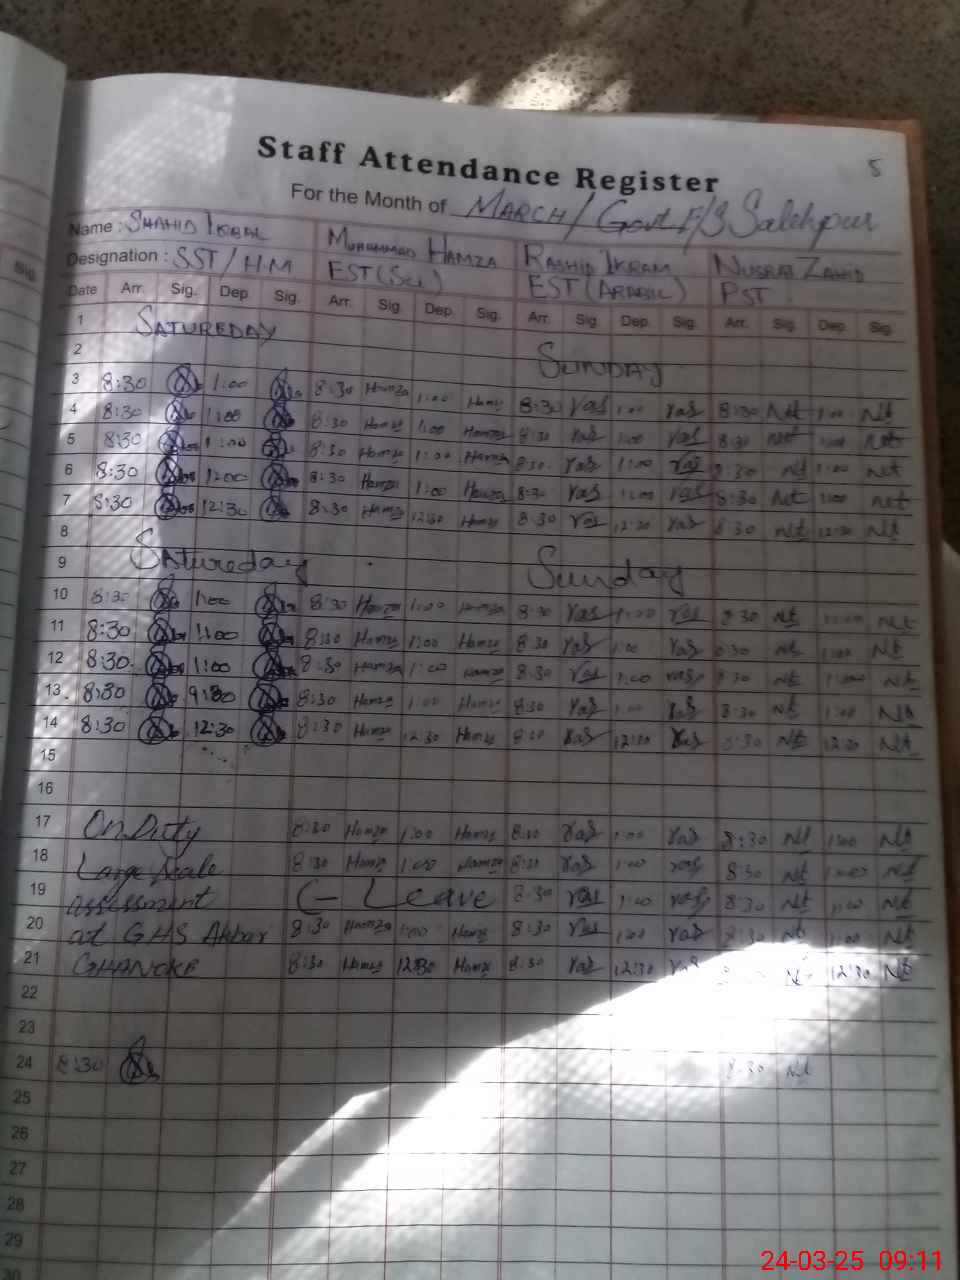 5
Staff Attendance Register
For the Month of MARCH / Govt E/S Salehpur
Name : SHAHID IQBAL MUHAMMAD HAMZA RASHID IKRAM NUSRAT ZAHID
Designation : SST/HM EST (Sci) EST (ARABIC) PST
Date Arr. Sig. Dep. Sig. Arr. Sig. Dep. Sig. Arr. Sig. Dep. Sig. Arr. Sig. Dep. Sig.
1 SATUREDAY
2 SUNDAY
3 8:30 1:00 8:30 Hamza 1:00 Hamz 8:30 Yas 1:00 Yas 8:30 Nt 1:00 Nt
4 8:30 1:00 8:30 Hamza 1:00 Hamza 8:30 Yas 1:00 Yas 8:30 Nt 1:00 Nt
5 8:30 1:00 8:30 Hamza 1:00 Hamza 8:30 Yas 1:00 Yas 8:30 Nt 1:00 Nt
6 8:30 1:00 8:30 Hamza 1:00 Hamza 8:30 Yas 1:00 Yas 8:30 Nt 1:00 Nt
7 8:30 12:30 8:30 Hamza 12:30 Hamza 8:30 Yas 12:30 Yas 8:30 Nt 12:30 Nt
8 Satureday
9 Sunday
10 8:30 1:00 8:30 Hamza 1:00 Hamza 8:30 Yas 1:00 Yas 8:30 Nt 1:00 Nt
11 8:30 1:00 8:30 Hamza 1:00 Hamza 8:30 Yas 1:00 Yas 8:30 Nt 1:00 Nt
12 8:30 1:00 8:30 Hamza 1:00 Hamza 8:30 Yas 1:00 Yas 8:30 Nt 1:00 Nt
13 8:30 9:30 8:30 Hamza 1:00 Hamza 8:30 Yas 1:00 Yas 8:30 Nt 1:00 Nt
14 8:30 12:30 8:30 Hamza 12:30 Hamza 8:30 Yas 12:30 Yas 8:30 Nt 12:30 Nt
15
16
17 On Duty 8:30 Hamza 1:00 Hamza 8:30 Yas 1:00 Yas 8:30 Nt 1:00 Nt
18 Large Scale 8:30 Hamza 1:00 Hamza 8:30 Yas 1:00 Yas 8:30 Nt 1:00 Nt
19 assessment C- Leave 8:30 Yas 1:00 Yas 8:30 Nt 1:00 Nt
20 at GHS Akbar 8:30 Hamza 1:00 Hamza 8:30 Yas 1:00 Yas 8:30 Nt 1:00 Nt
21 GHANOKE 8:30 Hamza 12:30 Hamza 8:30 Yas 12:30 Yas Nt 12:30 Nt
22
23
24 8:30 8:30 Nt
25
26
27
28
29
30
24-03-25 09:11